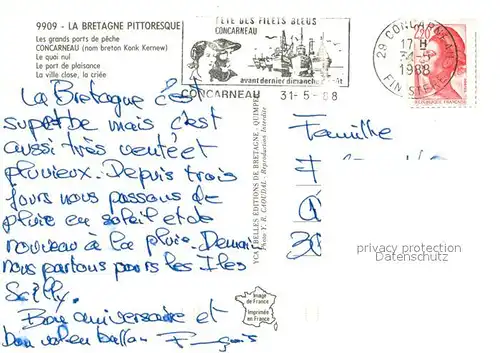 9909 - LA BRETAGNE PITTORESQUE
Les grands ports de pêche
CONCARNEAU (nom breton Konk Kernew)
Le quai nul
Le port de plaisance
La ville close, la criée
FÊTE DES FILETS BLEUS
CONCARNEAU
avant dernier dimanche
CONCARNEAU 31-5-88
29 CONCARNEAU
17 H
31-5
1988
FINISTERE
2,20
REPUBLIQUE FRANÇAISE
La Bretagne c'est
superbe mais c'est
aussi très venté et
pluvieux. Depuis trois
jours nous passons de
pluie en soleil et de
nouveau à la pluie. Demain
nous partons pour les Iles
Scilly.
Bon anniversaire et
bon
YCA BELLES ÉDITIONS DE BRETAGNE, QUIMPER
Photo Y. R. CAOUDAL - Reproduction Interdite
Image
de France
Imprimée
en France
Famille
privacy protection
Datenschutz.